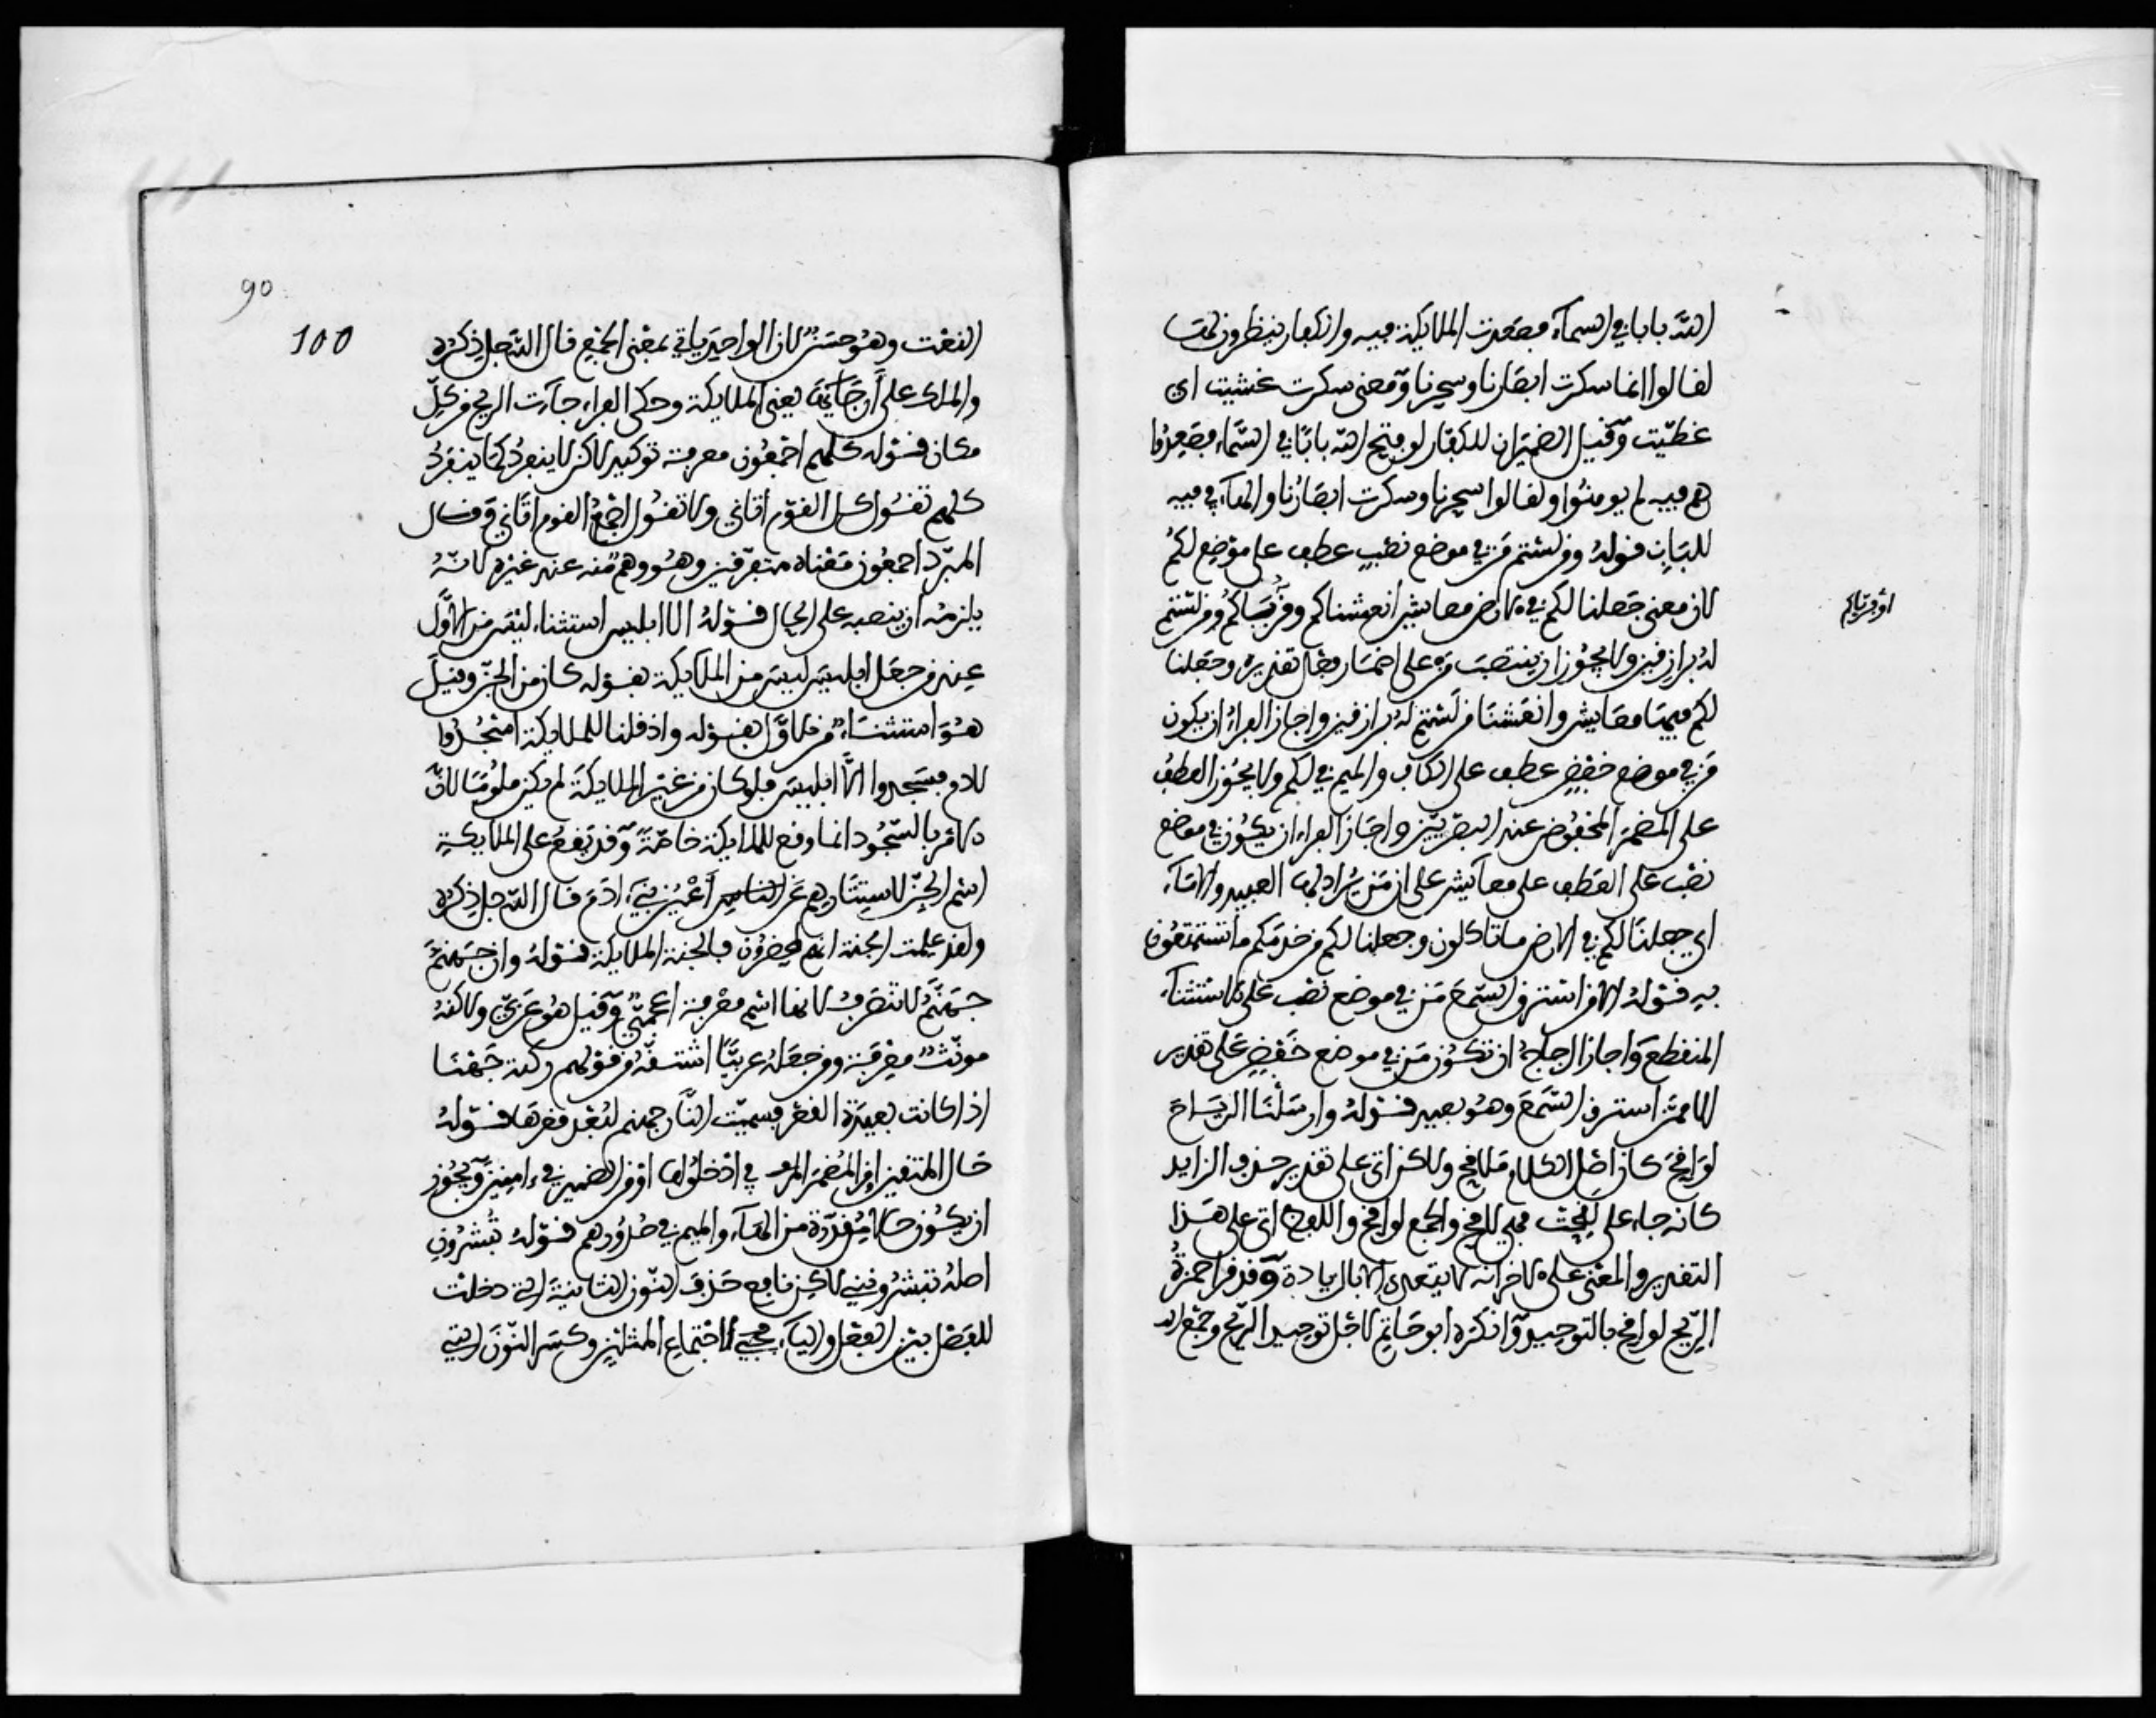 الله بابا في السماء فصعدت الملايكة فيه والكفار ينظرون لهت
لقالوا انما سكرت ابصارنا وسحرنا ومعنى سكرت غشيت اي
غطيت وقيل الضميران للكفار لو فتح الله بابا في السماء فصعدوا
هم فيه لم يومنوا ولقالوا سحرنا وسكرت ابصارنا والهاء في فيه
للباب قوله ومن لستم من في موضع نصب عطف على موضع لكم
لان معنى جعلنا لكم في الارض معايش انعشناكم وقويناكم ومن لستم
اوقريناكم
له برازقين ولا يجوز ان ينتصب من على اضمار فعل تقديره وجعلنا
لكم فيها معايش وانعشنا من لستم له برازقين واجاز الفراء ان يكون
من في موضع خفض عطف على الكاف والميم في لكم ولا يجوز العطف
على المضمر المخفوض عند البصريين واجاز الفراء ان يكون في موضع
نصب على العطف على معايش على ان من يراد بها العبيد والاماء
اي جعلنا لكم في الارض ما تاكلون وجعلنا لكم من خدمكم ما تستمتعون
به قوله الا من استرق السمع من في موضع نصب على الاستثناء
المنقطع واجاز الزجاج ان تكون من في موضع خفض على تقدير
الا ممن استرق السمع وهو بعيد قوله وارسلنا الرياح
لواقح كان اصل الكلام ملاقح ولاكن اتى على تقدير حذف الزايد
كانه جاء على لقحت فهي لاقح والجمع لواقح واللفظ اتى على هذا
التقدير والمعنى على الاخر انه لا يتعدى الا بالزيادة وقد قرا حمزة
الريح لواقح بالتوحيد وانكره ابو حاتم لاجل توحيد الريح وجمع
90
100
النعت وهو حسن لان الواحد ياتي بمعنى الجمع قال الله جل ذكره
والملك على ارجايها يعني الملايكة وحكى الفراء جاءت الريح من كل
مكان قوله كلهم اجمعون معرفة توكيد لاكن لا ينفرد كما ينفرد
كلهم تقول كل القوم اتاني ولا تقول اجمع القوم اتاني وقال
المبرد اجمعون معناه متفرقين وهو وهم منه عند غيره لانه
يلزمه ان ينصبه على الحال قوله الا ابليس استثناء ليس من الاول
عند من جعل ابليس ليس من الملايكة بقوله كان من الجن وقيل
هو استثناء من الاول بقوله واذ قلنا للملايكة اسجدوا
لادم فسجدوا الا ابليس فلو كان من غير الملايكة لم يكن ملوما لان
الامر بالسجود انما وقع للملايكة خاصة وقد يقع على الملايكة
اسم الجن لاستتارهم عن الناس اعين بني ادم قال الله جل ذكره
ولقد علمت الجنة انهم لمحضرون فالجنة الملايكة قوله وان جهنم
جهنم لا تنصرف لانها اسم معرفة اعجمي وقيل هو عربي ولاكنه
مونث معرفة ومن جعله عربيا اشتقه من قولهم ركية جهنا
اذا كانت بعيدة القعر فسميت النار جهنم لبعد قعرها قوله
حال المتقين او المضمر المرفوع في ادخلوها او من الضمير في ءامنين ويجوز
ان يكون حالا مقدرة من الهاء والميم في صدورهم قوله تبشرون
اصله تبشرونني لاكن نافع حذف النون الثانية التي دخلت
للفصل بين الفعل والياء لاجتماع المثلين وكسر النون التي